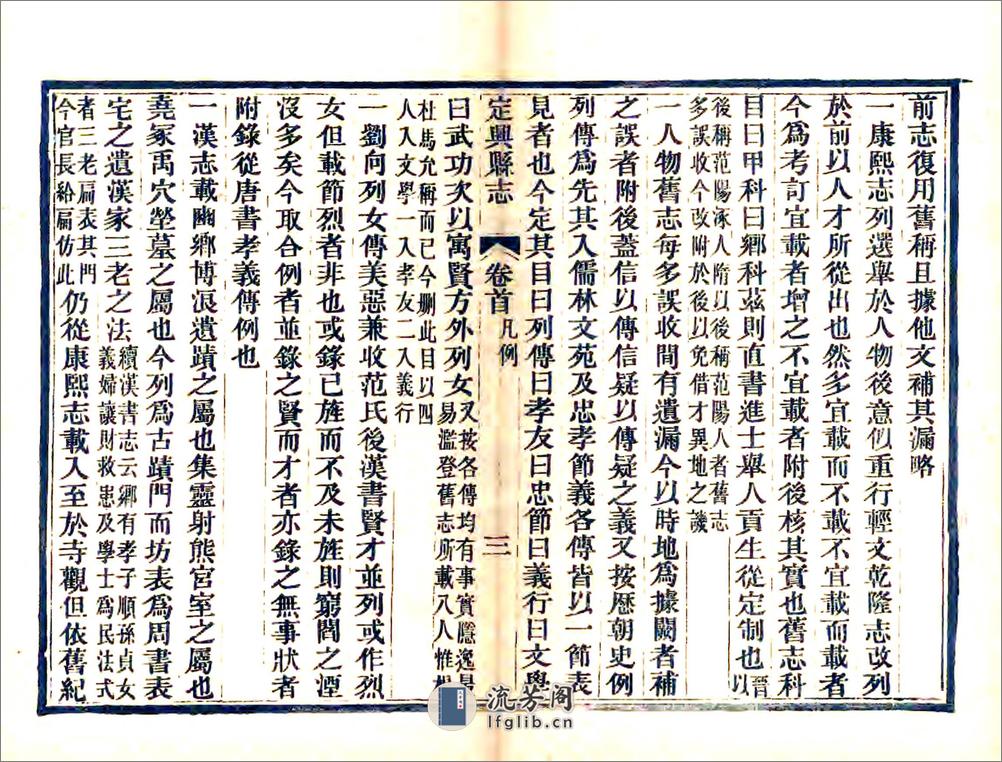 前志復用舊稱且據他文補其漏略
一康熙志列選舉於人物後意似重行輕文乾隆志改列
於前以人才所從出也然多宜載而不載不宜載而載者
今爲考訂宜載者增之不宜載者附後核其實也舊志科
目曰甲科曰鄉科茲則直書進士舉人貢生從定制也晉以
後稱范陽涿人隋以後稱范陽人者舊志
多誤收今改附於後以免借才異地之譏
一人物舊志每多誤收間有遺漏今以時地爲據闕者補
之誤者附後蓋信以傳信疑以傳疑之義又按歷朝史例
列傳爲先其入儒林文苑及忠孝節義各傳皆以一節表
見者也今定其目曰列傳曰孝友曰忠節曰義行曰文學
定興縣志
卷首
凡例
三
曰武功次以寓賢方外列女又按各傳均有事實隱逸
易濫登舊志所載八人惟
杜馬允稱而已今刪此目以四
人入文學一入孝友二入義行
一劉向列女傳美惡兼收范氏後漢書賢才並列或作烈
女但載節烈者非也或錄已旌而不及未旌則窮閻之湮
沒多矣今取合例者並錄之賢而才者亦錄之無事狀者
附錄從唐書孝義傳例也
一漢志載豳鄉博浪遺蹟之屬也集靈射熊宮室之屬也
堯冢禹穴塋墓之屬也今列爲古蹟門而坊表爲周書表
宅之遺漢家三老之法續漢書志云鄉有孝子順孫貞女
義婦讓財救患及學士爲民法式
者三老扁表其門
今官長給扁仿此仍從康熙志載入至於寺觀但依舊紀
流芳閣
lfglib.cn